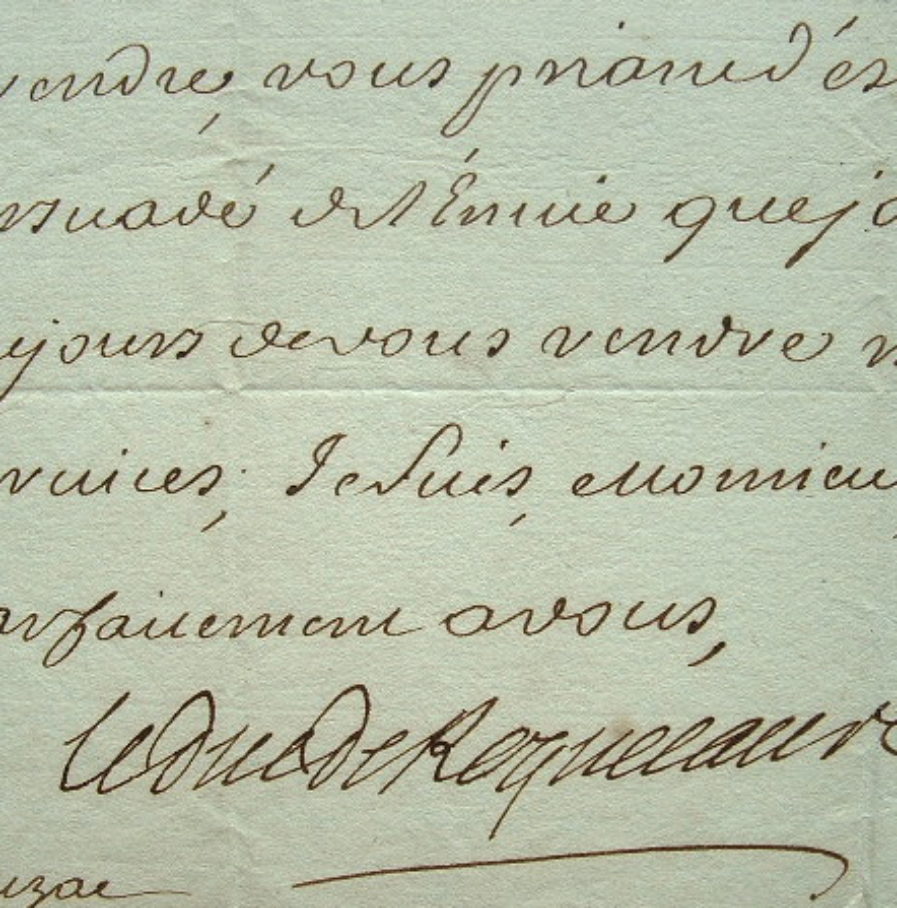 rendre, vous priant d'es
rsuadé de l'Envie que j'a
ujours de vous rendre m
rvices, Je suis, Monsieu
arfaitement a vous,
le duc de Roquelaure
uzac